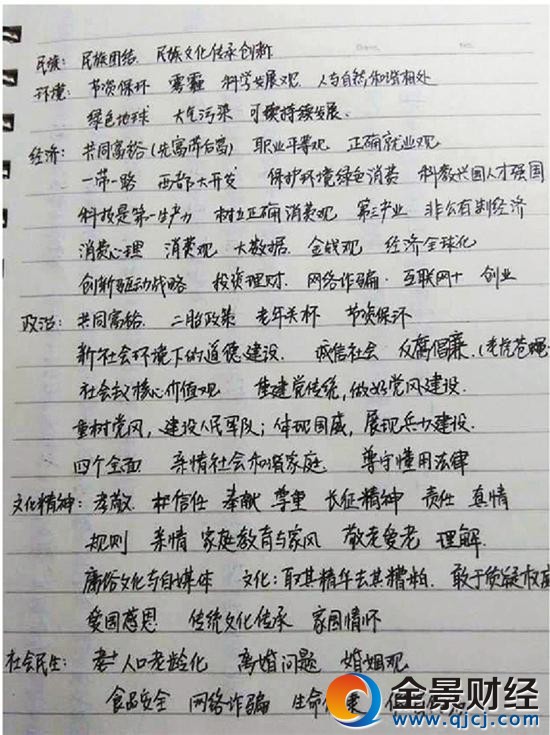 民族：民族团结、民族文化传承创新
环境：节资保环 雾霾 科学发展观 人与自然和谐相处
绿色地球 大气污染 可续持续发展.
经济：共同富裕(先富带后富) 职业平等观 正确就业观
一带一路 西部大开发 保护环境绿色消费 科教兴国人才强国
科技是第一生产力 树立正确消费观 第三产业 非公有制经济
消费心理 消费观 大数据 金钱观 经济全球化
创新驱动战略 投资理财. 网络诈骗. 互联网+ 创业
政治：共同富裕. 二胎政策 老年关怀 节资保环
新社会环境下的道德建设. 诚信社会 反腐倡廉.(老虎苍蝇
社会主义核心价值观 重建党传统，做好党风建设.
重树党风，建设人民军队；体现国威，展现兵力建设.
四个全面 亲情社会和谐家庭 尊守懂用法律
文化精神：孝敬. 信任 奉献 尊重 长征精神 责任 真情
规则 亲情 家庭教育与家风 敬老爱老 理解.
庸俗文化与自媒体 文化：取其精华去其糟粕. 敢于质疑权威
爱国感恩 传统文化传承 家国情怀
社会民生：人口老龄化 离婚问题 婚姻观
食品安全 网络诈骗 生命健康
金景财经
www.qjcj.com